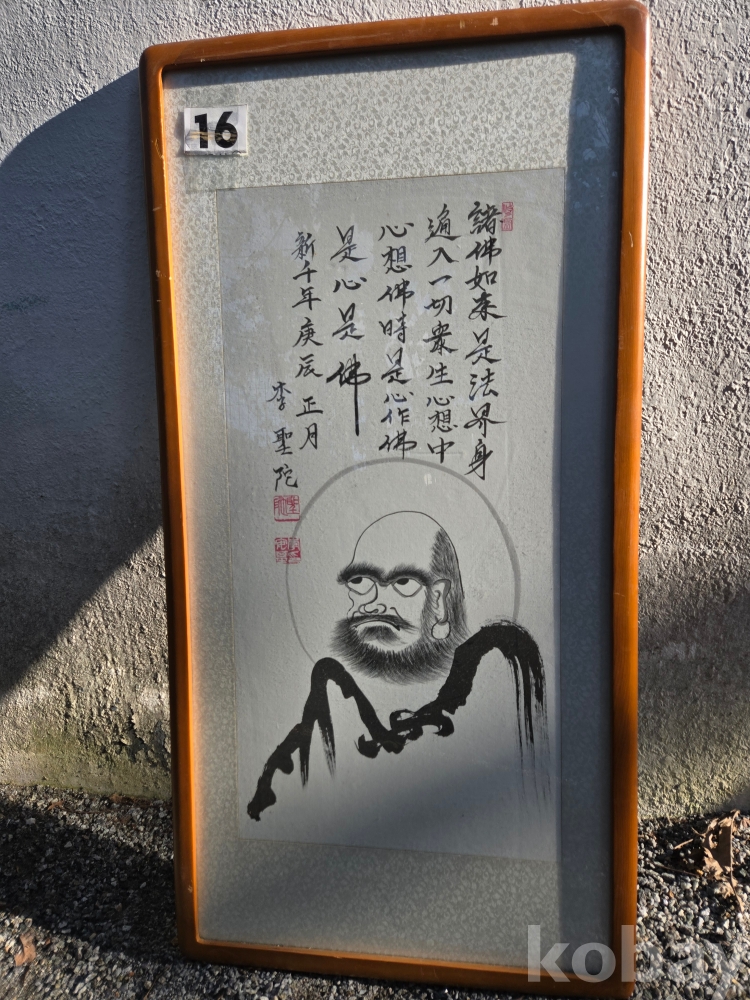 16
諸佛如來是法界身
遍入一切衆生心想中
心想佛時是心作佛
是心是佛
新千年庚辰正月
李聖陀
kobay